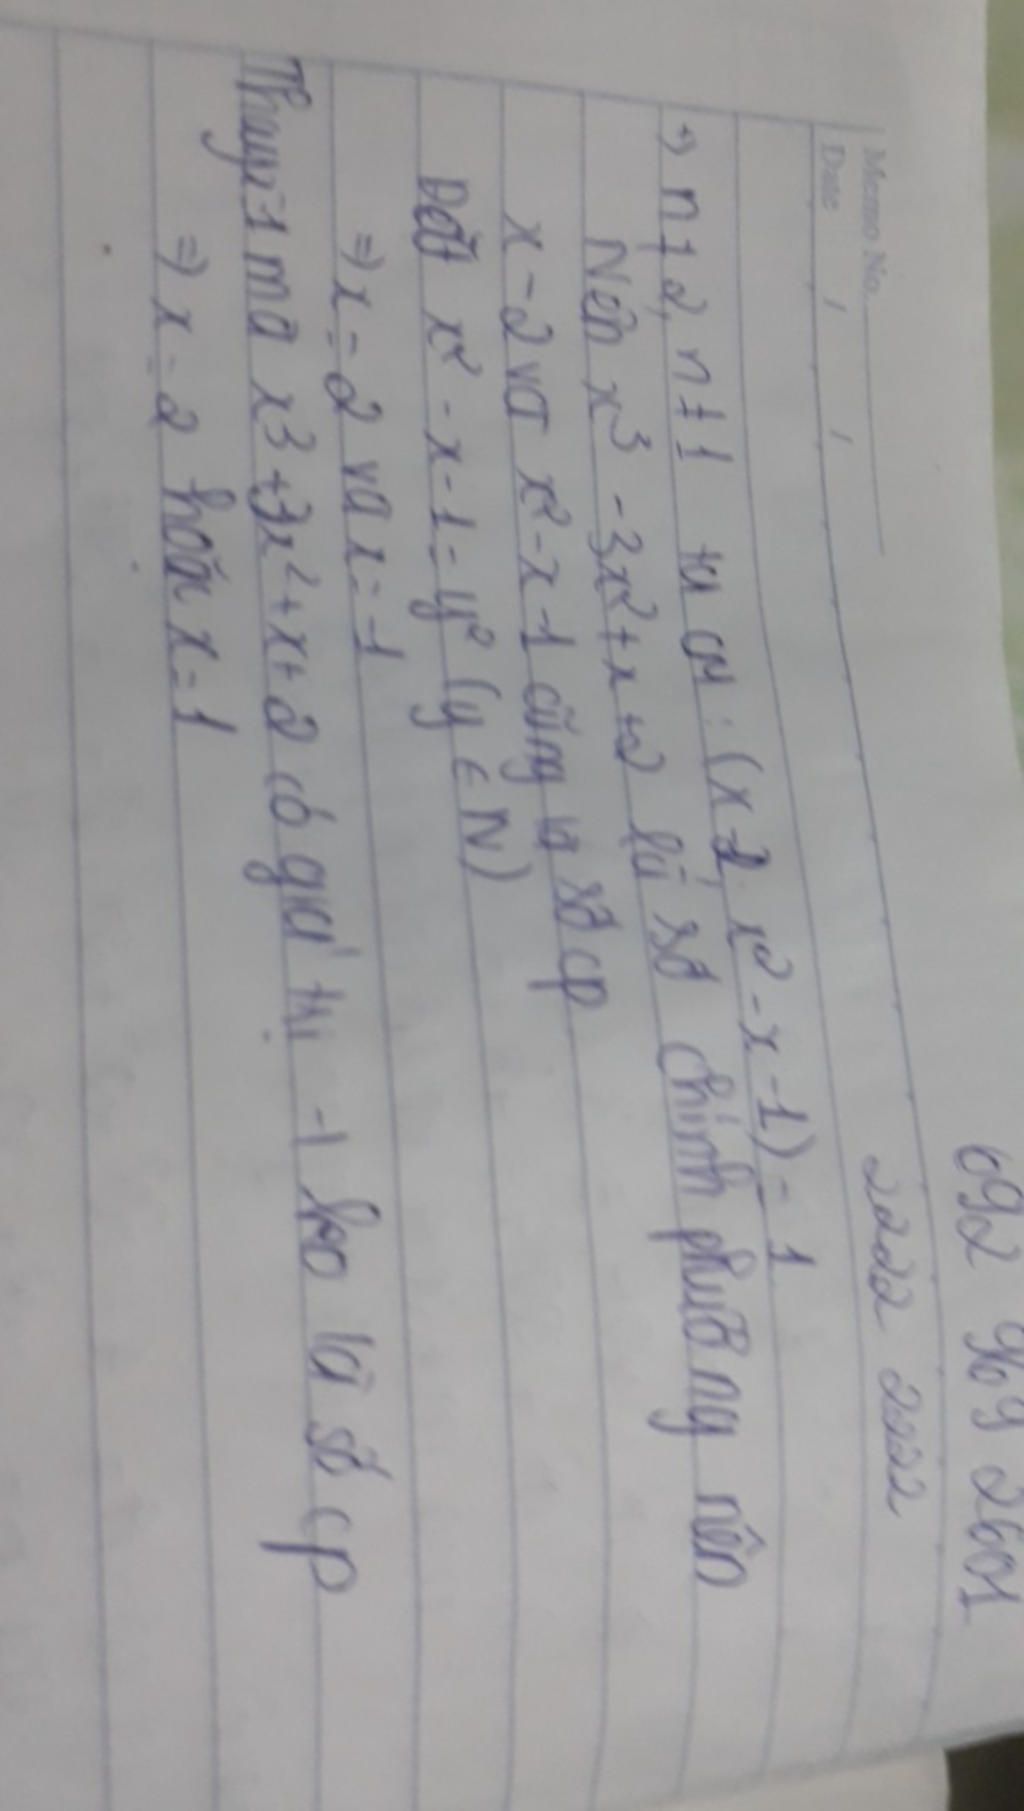 692 969 2601
2222 2022
Memo No.
Date / /
→ n≠2, n≠1 ta CM: (x-2, x² - x - 1) = 1
Nên x³ - 3x² + x + 2 là số chính phương nên
x - 2 và x² - x - 1 cũng là số cp
Đặt x² - x - 1 = y² (y ∈ N)
⇒ x = 2 và x = -1
Thay x = -1 mà x³ + 3x² + x + 2 có giá trị -1 ko là số cp
⇒ x = 2 hoặc x = 1